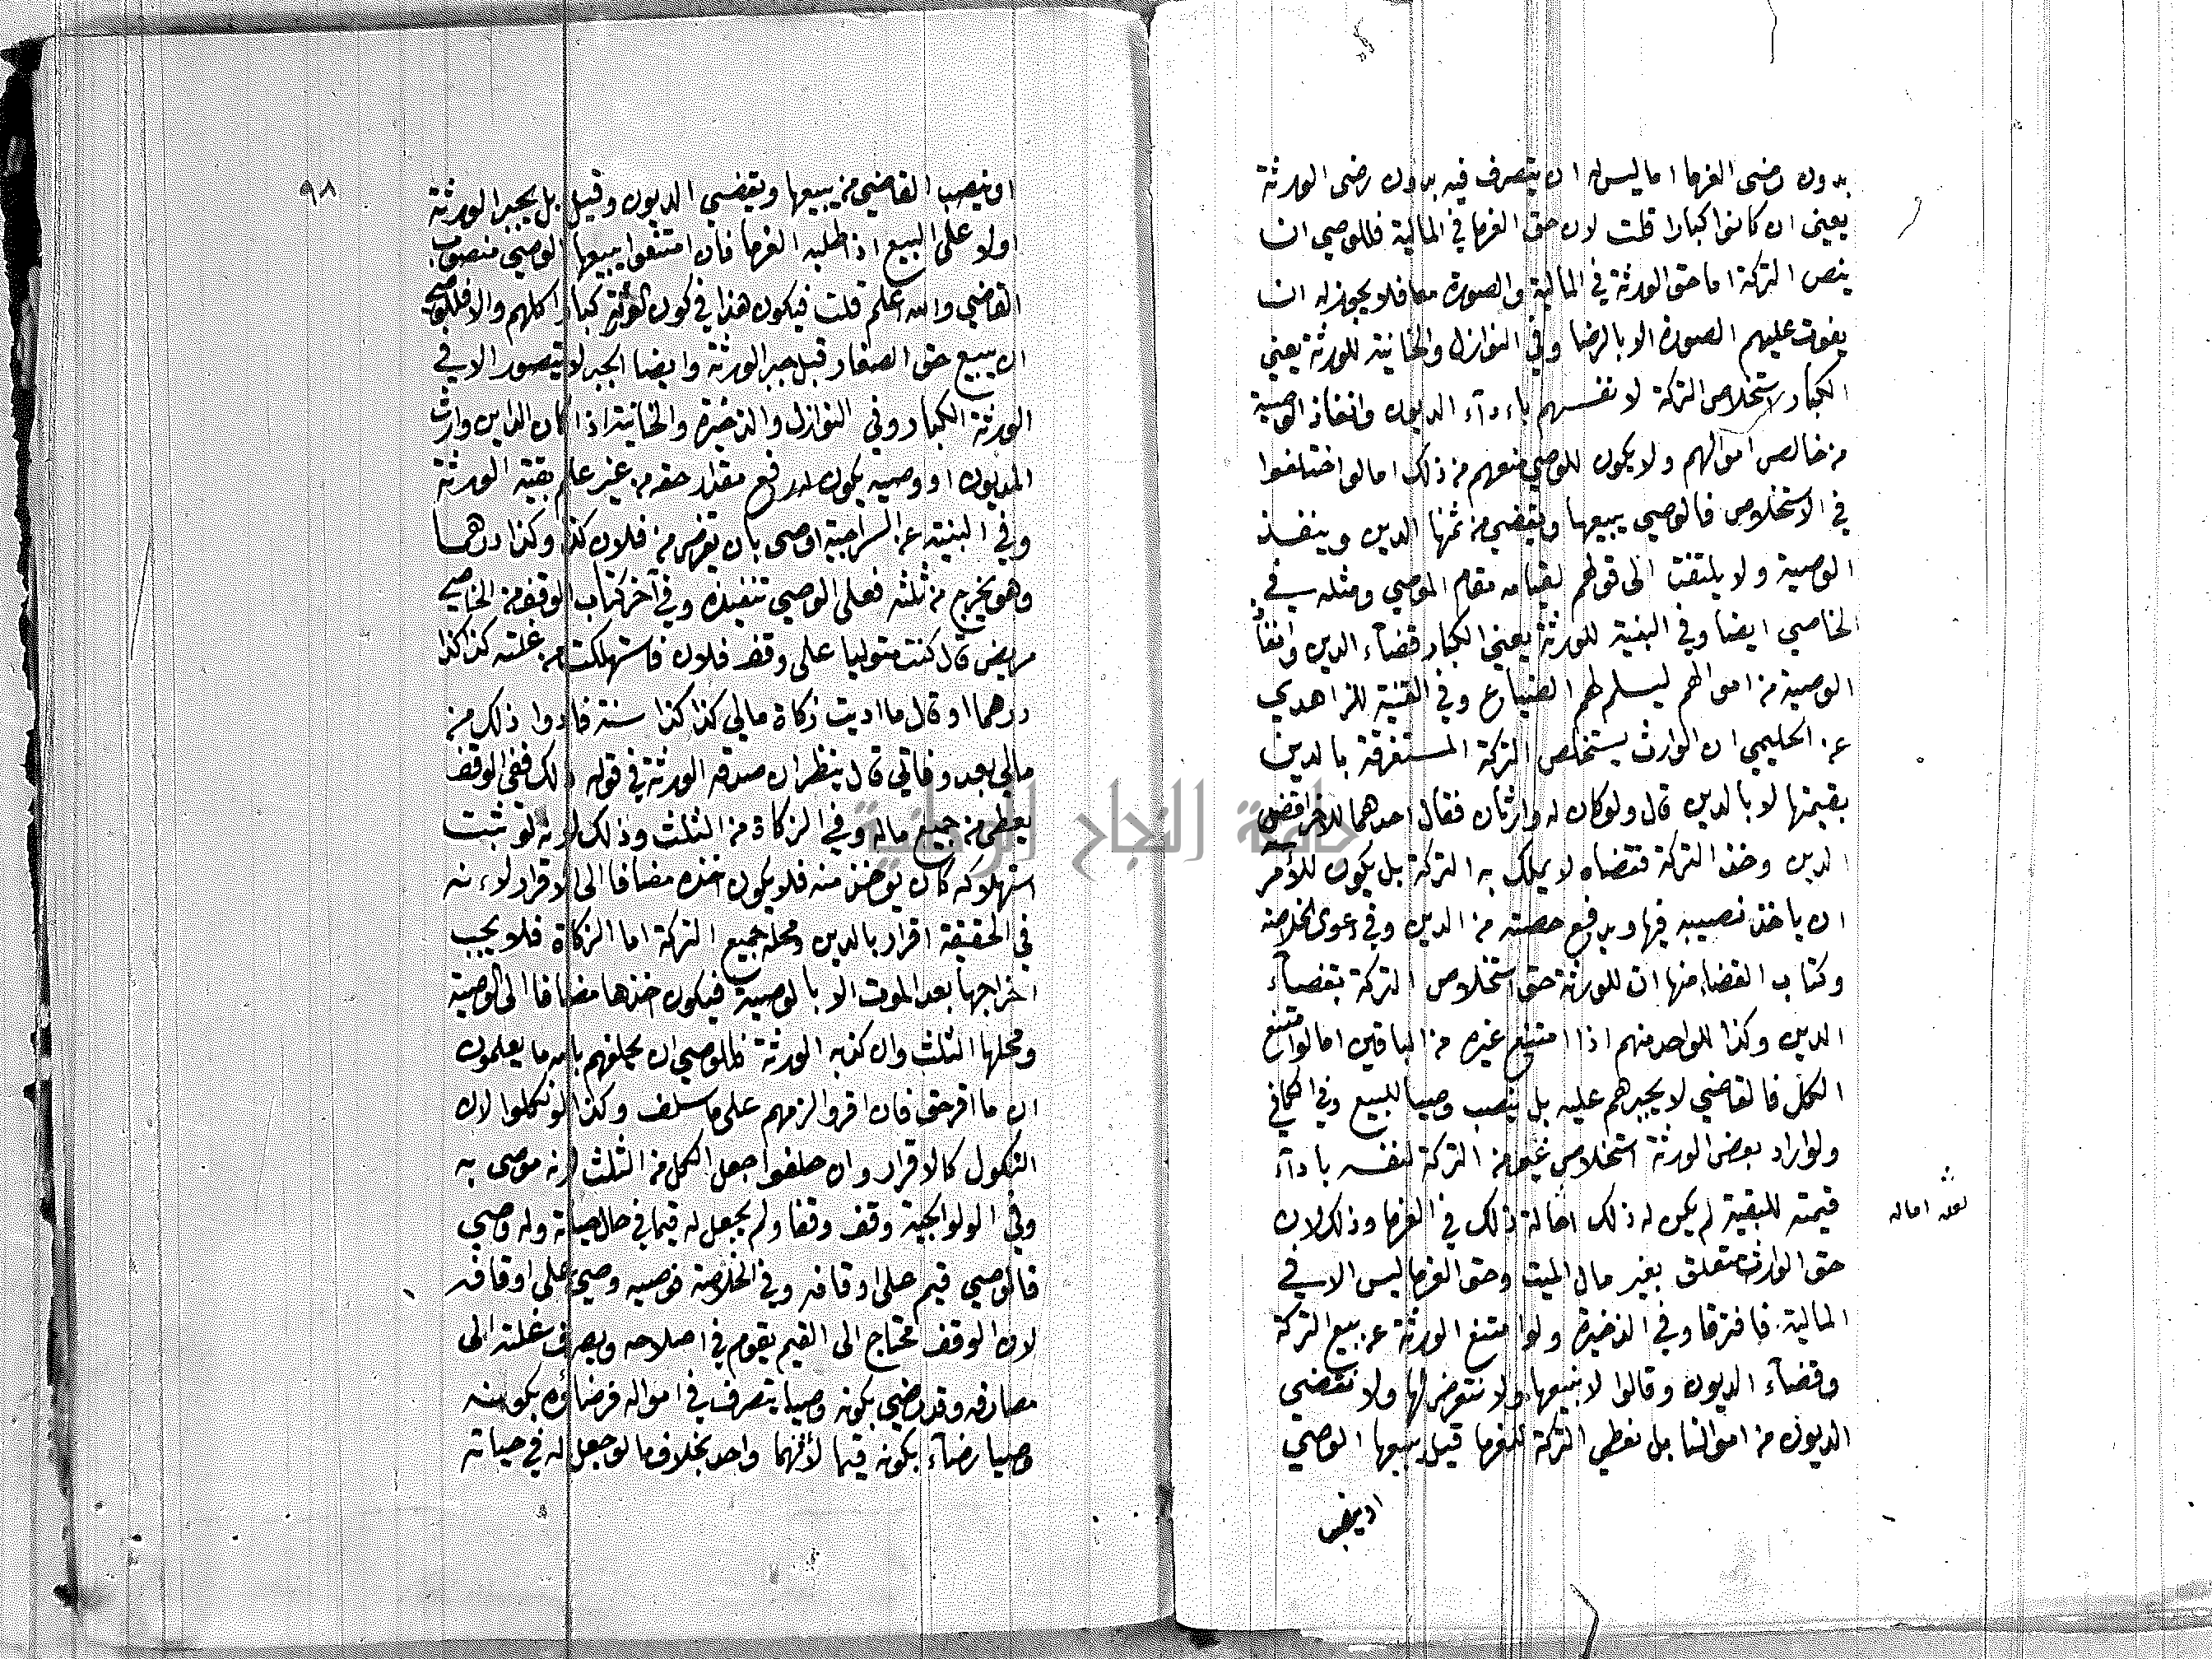 بدون رضى الغرما اما ليس له ان يتصرف فيه بدون رضى الورثة
يعني ان كانوا كبارا قلت لان حق الغرما في المالية فللوصي ان
ينص التركة اما حق الورثة في المالية والصورة معا فلا يجوز له ان
يفوت عليهم الصورة الا بالرضا وفي النوازل والخانية للورثة يعني
الكبار استخلاص التركة لانفسهم باداء الديون وانفاذ الوصية
من خالص اموالهم ولا يكون للوصي منعهم من ذلك اما لو اختلفوا
في الاستخلاص فالوصي يبيعها ويقضي من ثمنها الدين وينفذ
الوصية ولا يلتفت الى قولهم لقيامه مقام الموصي ومثله في
الخاصي ايضا وفي البغية للورثة يعني الكبار قضآء الدين وانفا
الوصية من اموالهم ليسلم لهم الضياع وفي القنية للزاهدي
عن الحليمي ان الوارث يستخلص التركة المستغرقة بالدين
بقيمتها لا بالدين قال ولو كان له وارثان فقال احدهما للاخر اقض
الدين وخذ التركة فقضاه لا يملك به التركة بل يكون للآمر
ان ياخذ نصيبه فيها ويدفع حصته من الدين وفي دعوى الخلاصة
وكتاب القضا منها ان للورثة حق استخلاص التركة بقضآء
الدين وكذا للواحد منهم اذا امتنع غيره من الباقين اما لو امتنع
الكل فالقاضي لا يجبرهم عليه بل ينصب وصيا للبيع وفي الكافي
ولو اراد بعض الورثة استخلاص عين من التركة لنفسه باداء
قيمته للبقية لم يكن له ذلك اصالة ذلك في الغرما وذلك لان
لعله اما له
حق الوارث متعلق بعين مال الميت وحق الغرما ليس الا في
المالية فافترقا وفي الذخيرة ولو امتنع الورثة عن بيع التركة
وقضآء الديون وقالوا لا نبيعها ولا نتعرض لها ولا نقضي
الديون من اموالنا بل نعطي التركة للغرما قيل يبيعها الوصي
او ينصب
٩٨
او ينصب القاضي من يبيعها ويقضي الديون وقيل بل يجبر الورثة
اولا على البيع اذا طلبه الغرما فان امتنعوا يبيعها الوصي منصوب
القاضي والله اعلم قلت فيكون هذا في كون الورثة كبارا كلهم والا فللوصي
ان يبيع حق الصغار قبل جبر الورثة وايضا الجبر لا يتصور الا في
الورثة الكبار وفي النوازل والذخيرة والخانية اذا كان الداين وارث
المديون او وصيه يكون له رفع مقدار حقه من غير علم بقية الورثة
وفي البغية عن السراجية اوصى بان يقرض من فلان كذا وكذا درهما
وهو يخرج من ثلثه فعلى الوصي تنفيذه وفي آخر كتاب الوقف من الخاصي
مريض قال كنت متوليا على وقف فلان فاستهلكت من غلته كذا كذا
درهما او قال ما اديت زكاة مالي كذا كذا سنة فادوا ذلك من
مالي بعد وفاتي قال ينظر ان صدقه الورثة في قوله ذلك ففي الوقف
يعطى من جميع ماله وفي الزكاة من الثلث وذلك لانه لو ثبت
استهلاكه كان يؤخذ منه فلا يكون اخذه مضافا الى الاقرار لانه
في الحقيقة اقرار بالدين ومحله جميع التركة اما الزكاة فلا يجب
اخراجها بعد الموت الا بالوصية فيكون اخذها مضافا الى الوصية
ومحلها الثلث وان كذبه الورثة فللوصي ان يحلفهم بالله ما يعلمون
ان ما اقر حق فان اقروا لزمهم على ما سلف وكذا لو نكلوا لان
النكول كالاقرار وان حلفوا جعل الكل من الثلث لانه موصى به
وفي الولوالجية وقف وقفا ولم يجعل له قيما في حال حياته وله وصي
فالوصي قيم على اوقافه وفي الخلاصة فوصيه وصي على اوقافه
لان الوقف محتاج الى القيم يقوم في اصلاحه ويصرف غلته الى
مصارفه وقد رضي بكونه وصيا يتصرف في امواله فرضاؤه بكونه
وصيا رضآء بكونه قيما لأنهما واحد بخلاف ما لو جعل له في حياته
جامعة النجاح الوطنية